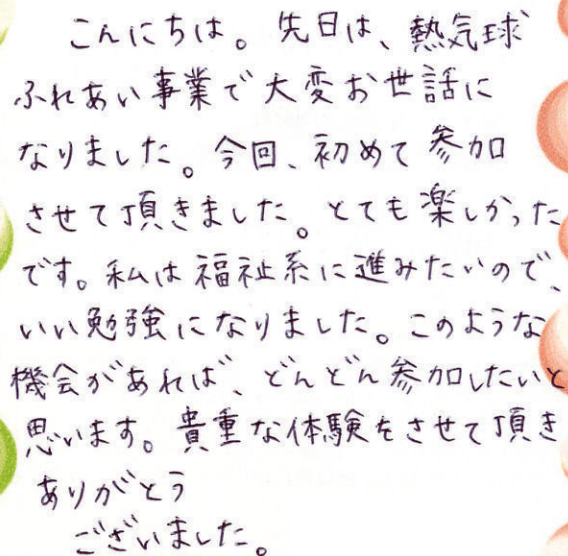 こんにちは。先日は、熱気球
ふれあい事業で大変お世話に
なりました。今回、初めて参加
させて頂きました。とても楽しかった
です。私は福祉系に進みたいので、
いい勉強になりました。このような
機会があれば、どんどん参加したいと
思います。貴重な体験をさせて頂き
ありがとう
ございました。